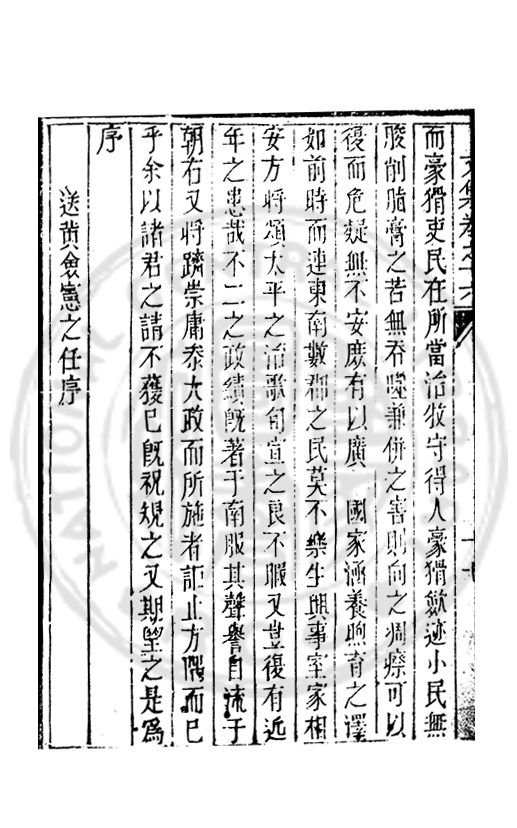 文集卷之十六
而豪猾吏民在所當治牧守得人豪猾斂迹小民無
朘削脂膏之苦無吞噬兼併之害則向之凋瘵可以
復而危疑無不安庶有以廣 國家涵養煦育之澤
如前時而連東南數郡之民莫不樂生興事室家相
安方將頌太平之治歌旬宣之良不暇又豈復有近
年之患哉不二之政績旣著于南服其聲譽自流于
朝右又將躋崇庸泰大政而所施者詎止方隅而已
乎余以諸君之請不獲已旣祝規之又期望之是爲
序
送黄僉憲之任序